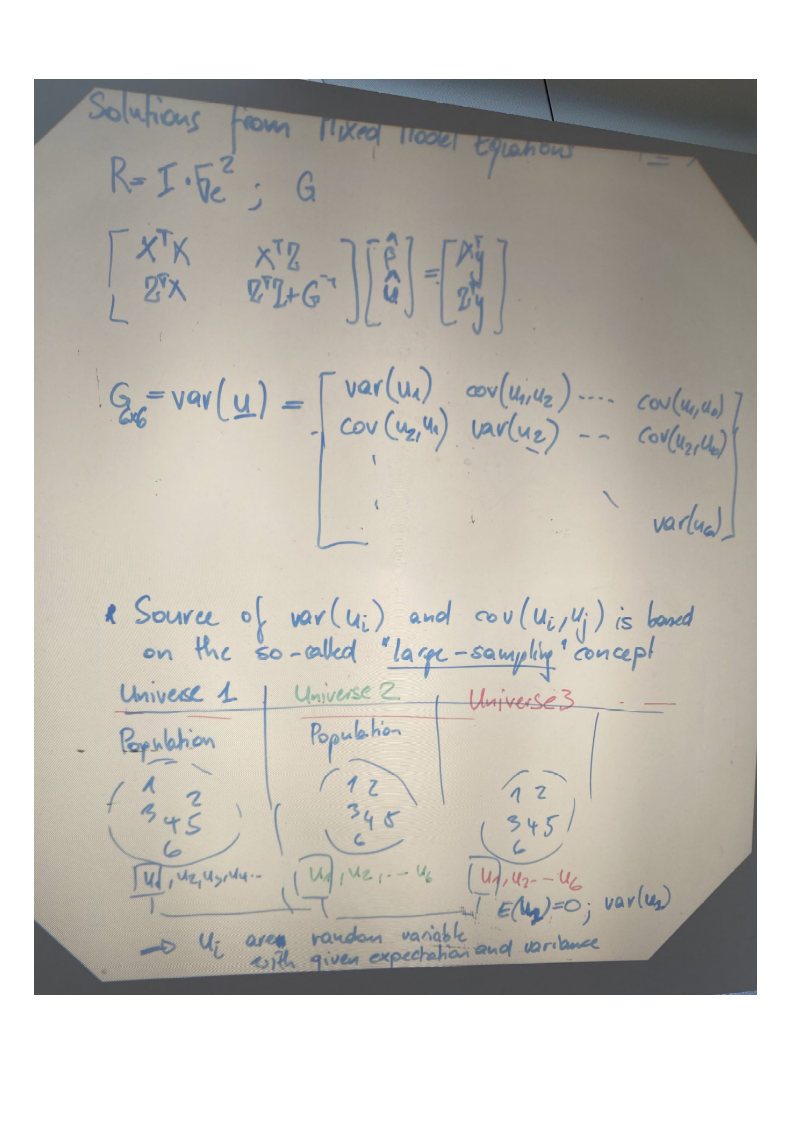 Solutions from Mixed Model Equations
R = I·σe² ; G
[ XᵀX XᵀZ ] [ β̂ ] = [ Xᵀy ]
[ ZᵀX ZᵀZ+G⁻¹ ] [ û ] [ Zᵀy ]
G6x6 = var(u) = [ var(u1) cov(u1,u2) .... cov(u1,u6) ]
cov(u2,u1) var(u2) -- cov(u2,u6)
var(u6)
Source of var(ui) and cov(ui,uj) is based
on the so-called "large-sampling" concept
Universe 1 Universe 2 Universe 3 - —
Population Population
1 2 1 2 1 2
3 4 5 3 4 5 3 4 5
6 6 6
u1, u2, u3, u4... u1, u2, .-- u6 u1, u2 -- u6
E(u2)=0; var(u2)
→ ui are random variable
with given expectation and varibance